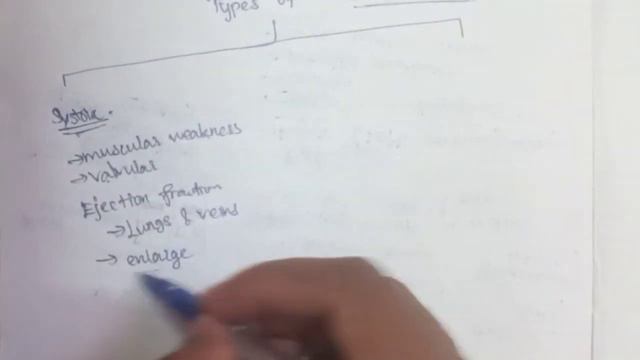 Types of
Systole
→muscular weakness
→valvular
Ejection fraction
→Lungs & veins
→ enlarge